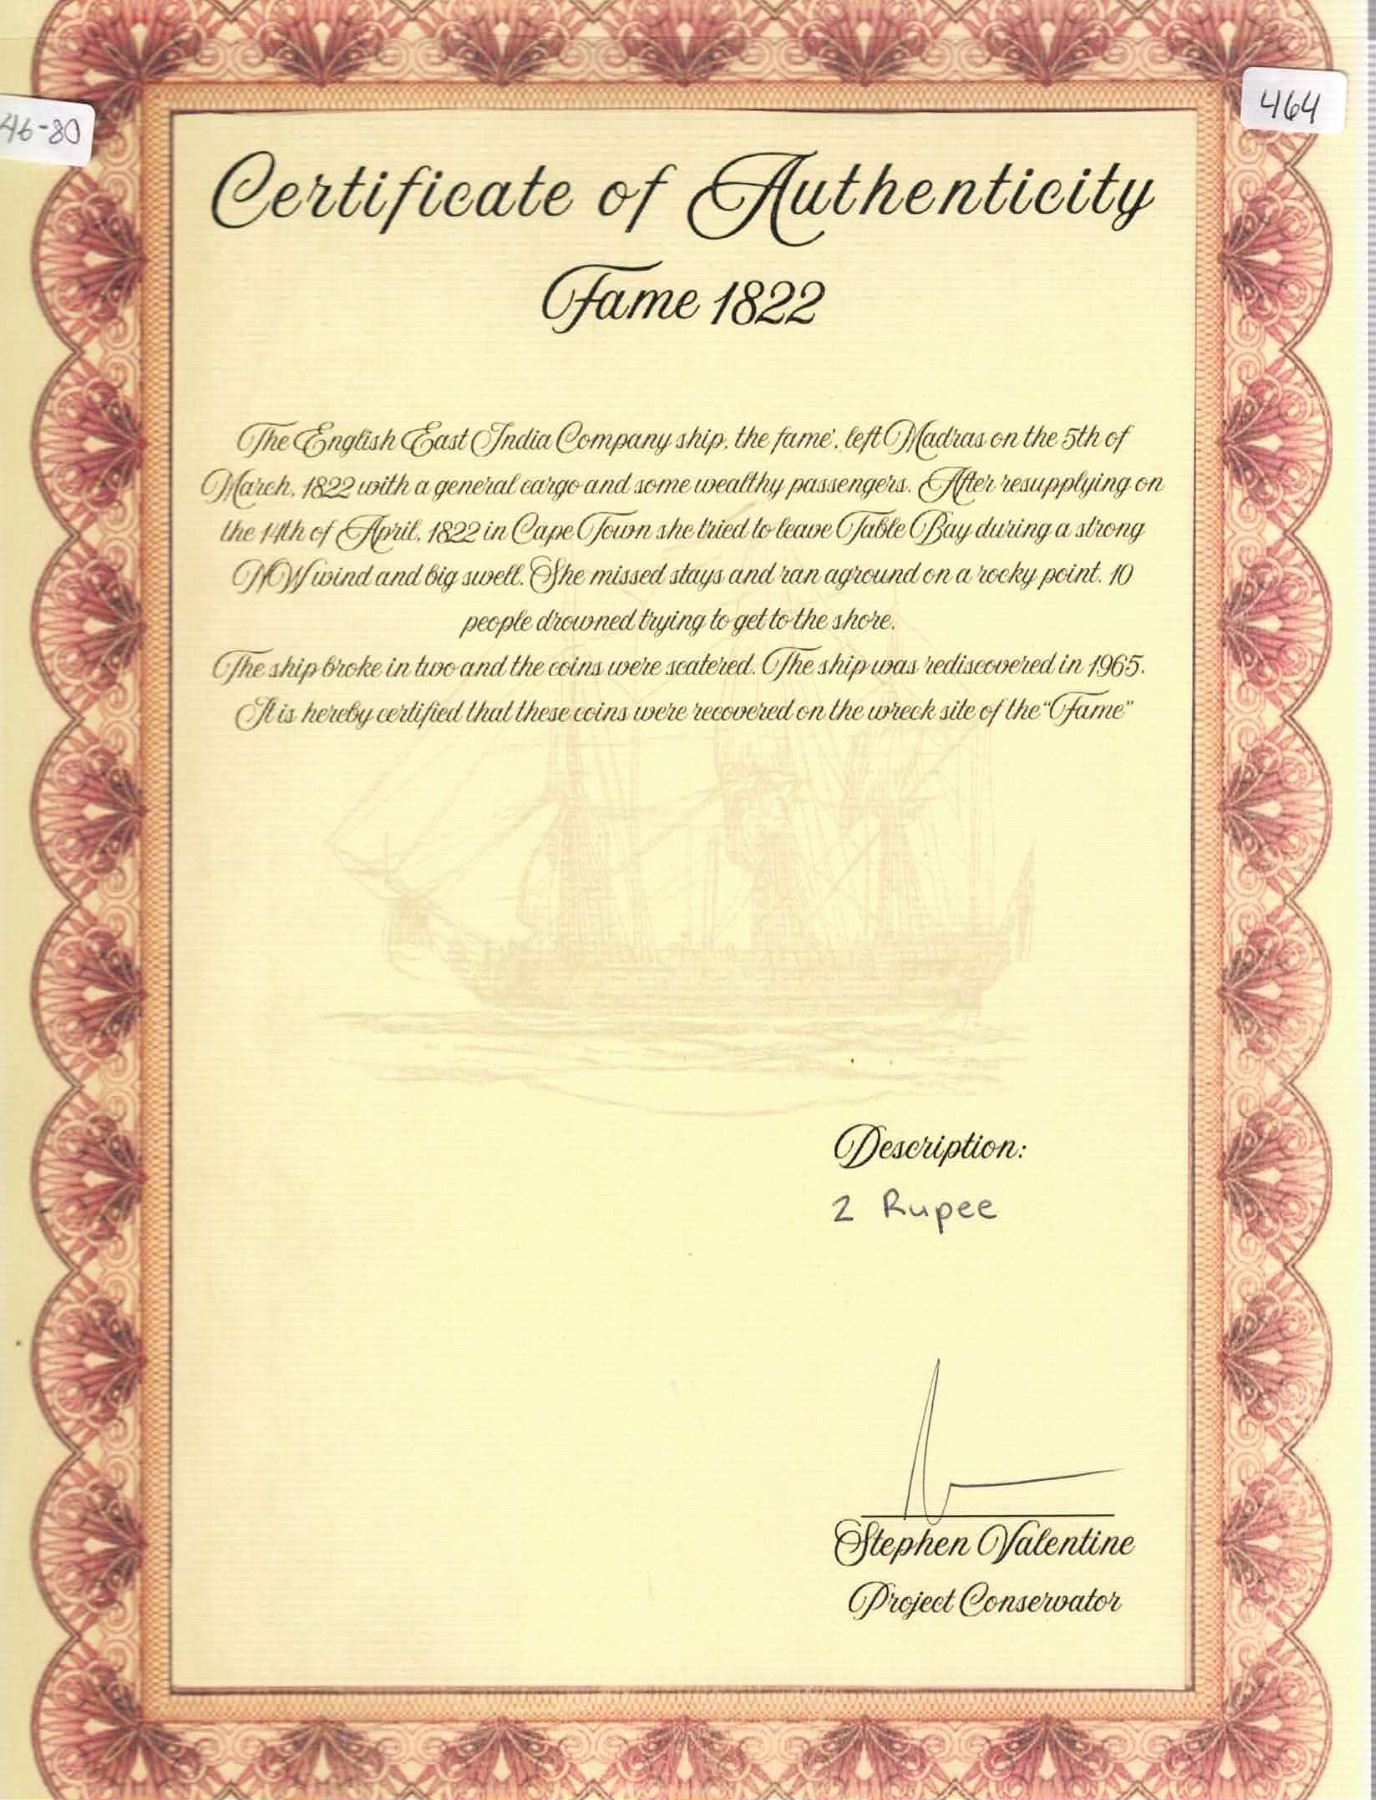 46-80
464
Certificate of Authenticity
Fame 1822
The English East India Company ship, the fame', left Madras on the 5th of
March, 1822 with a general cargo and some wealthy passengers. After resupplying on
the 14th of April, 1822 in Cape Town she tried to leave Table Bay during a strong
NW wind and big swell. She missed stays and ran aground on a rocky point. 10
people drowned trying to get to the shore.
The ship broke in two and the coins were scatered. The ship was rediscovered in 1965.
It is hereby certified that these coins were recovered on the wreck site of the "Fame"
Description:
2 Rupee
Stephen Valentine
Project Conservator